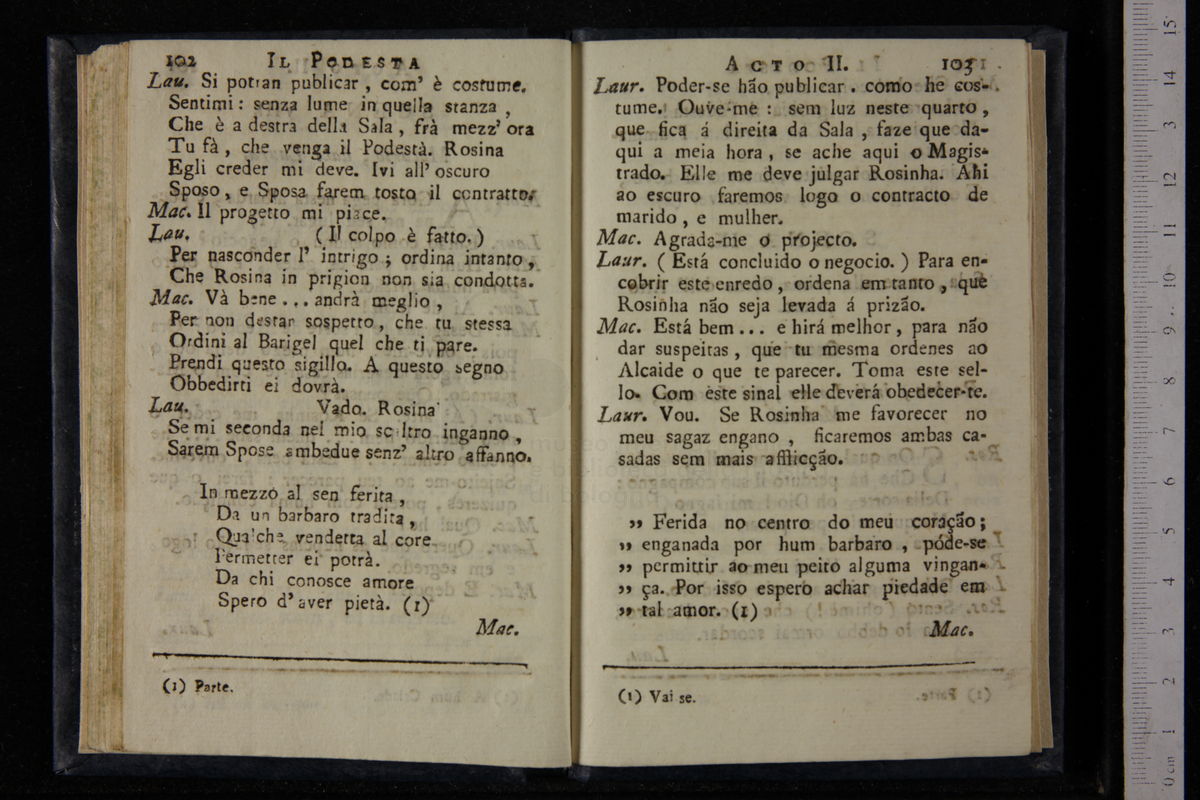 102 IL PODESTA
Lau. Si potran publicar , com' è costume.
Sentimi : senza lume in quella stanza ,
Che è a destra della Sala , frà mezz' ora
Tu fà , che venga il Podestà. Rosina
Egli creder mi deve. Ivi all' oscuro
Sposo , e Sposa farem tosto il contratto.
Mac. Il progetto mi piace.
Lau. ( Il colpo è fatto. )
Per nasconder l' intrigo ; ordina intanto ,
Che Rosina in prigion non sia condotta.
Mac. Và bene ... andrà meglio ,
Per non destar sospetto , che tu stessa
Ordini al Barigel quel che ti pare.
Prendi questo sigillo. A questo segno
Obbedirti ei dovrà.
Lau. Vado. Rosina
Se mi seconda nel mio scaltro inganno ,
Sarem Spose ambedue senz' altro affanno.
In mezzo al sen ferita ,
Da un barbaro tradita ,
Qualche vendetta al core
Permetter ei potrà.
Da chi conosce amore
Spero d' aver pietà. (1)
Mac.
(1) Parte.
ACTO II. 103
Laur. Poder-se hão publicar . como he cos-
tume. Ouve-me : sem luz neste quarto ,
que fica á direita da Sala , faze que da-
qui a meia hora , se ache aqui o Magis-
trado. Elle me deve julgar Rosinha. Ahi
ao escuro faremos logo o contracto de
marido , e mulher.
Mac. Agrada-me o projecto.
Laur. ( Está concluido o negocio. ) Para en-
cobrir este enredo , ordena em tanto , que
Rosinha não seja levada á prizão.
Mac. Está bem ... e hirá melhor , para não
dar suspeitas , que tu mesma ordenes ao
Alcaide o que te parecer. Toma este sel-
lo. Com este sinal elle deverá obedecer-te.
Laur. Vou. Se Rosinha me favorecer no
meu sagaz engano , ficaremos ambas ca-
sadas sem mais afflicção.
,, Ferida no centro do meu coração ;
,, enganada por hum barbaro , póde-se
,, permittir ao meu peito alguma vingan-
,, ça. Por isso espero achar piedade em
,, tal amor. (1)
Mac.
(1) Vai se.
0 cm 1 2 3 4 5 6 7 8 9 10 11 12 13 14 15